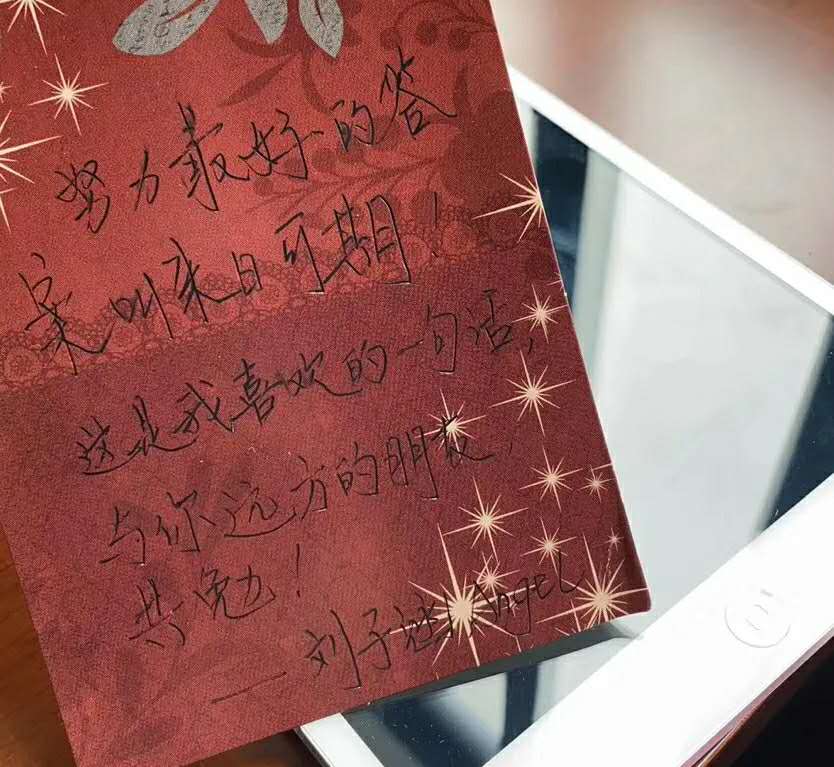 努力最好的答
案叫来日可期！
这是我喜欢的一句话，
与你远方的朋友，
共勉！
——刘子 Angel